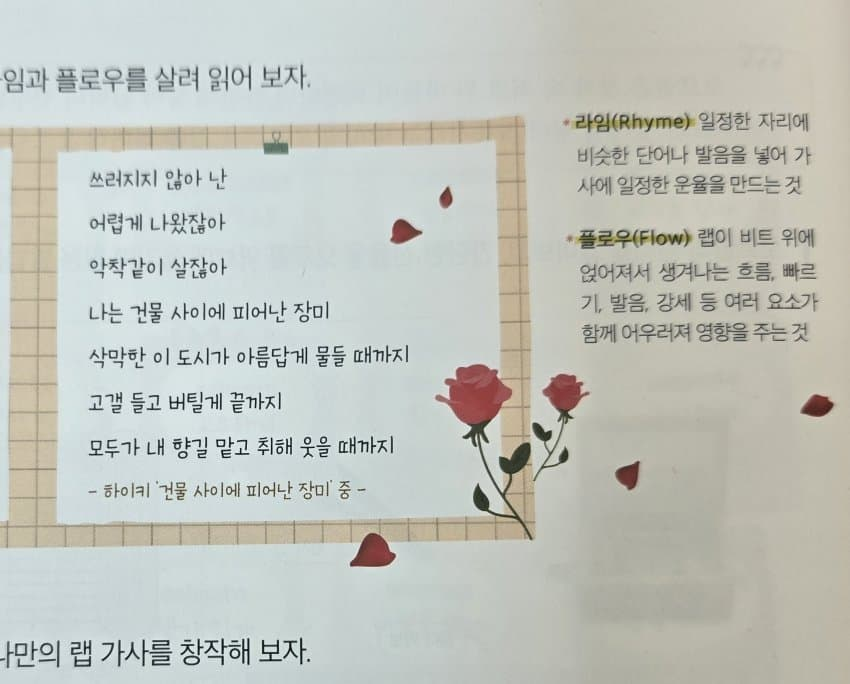 라임과 플로우를 살려 읽어 보자.
쓰러지지 않아 난
어렵게 나왔잖아
악착같이 살잖아
나는 건물 사이에 피어난 장미
삭막한 이 도시가 아름답게 물들 때까지
고갤 들고 버틸게 끝까지
모두가 내 향길 맡고 취해 웃을 때까지
- 하이키 '건물 사이에 피어난 장미' 중 -
* 라임(Rhyme) 일정한 자리에
비슷한 단어나 발음을 넣어 가
사에 일정한 운율을 만드는 것
* 플로우(Flow) 랩이 비트 위에
얹어져서 생겨나는 흐름, 빠르
기, 발음, 강세 등 여러 요소가
함께 어우러져 영향을 주는 것
나만의 랩 가사를 창작해 보자.